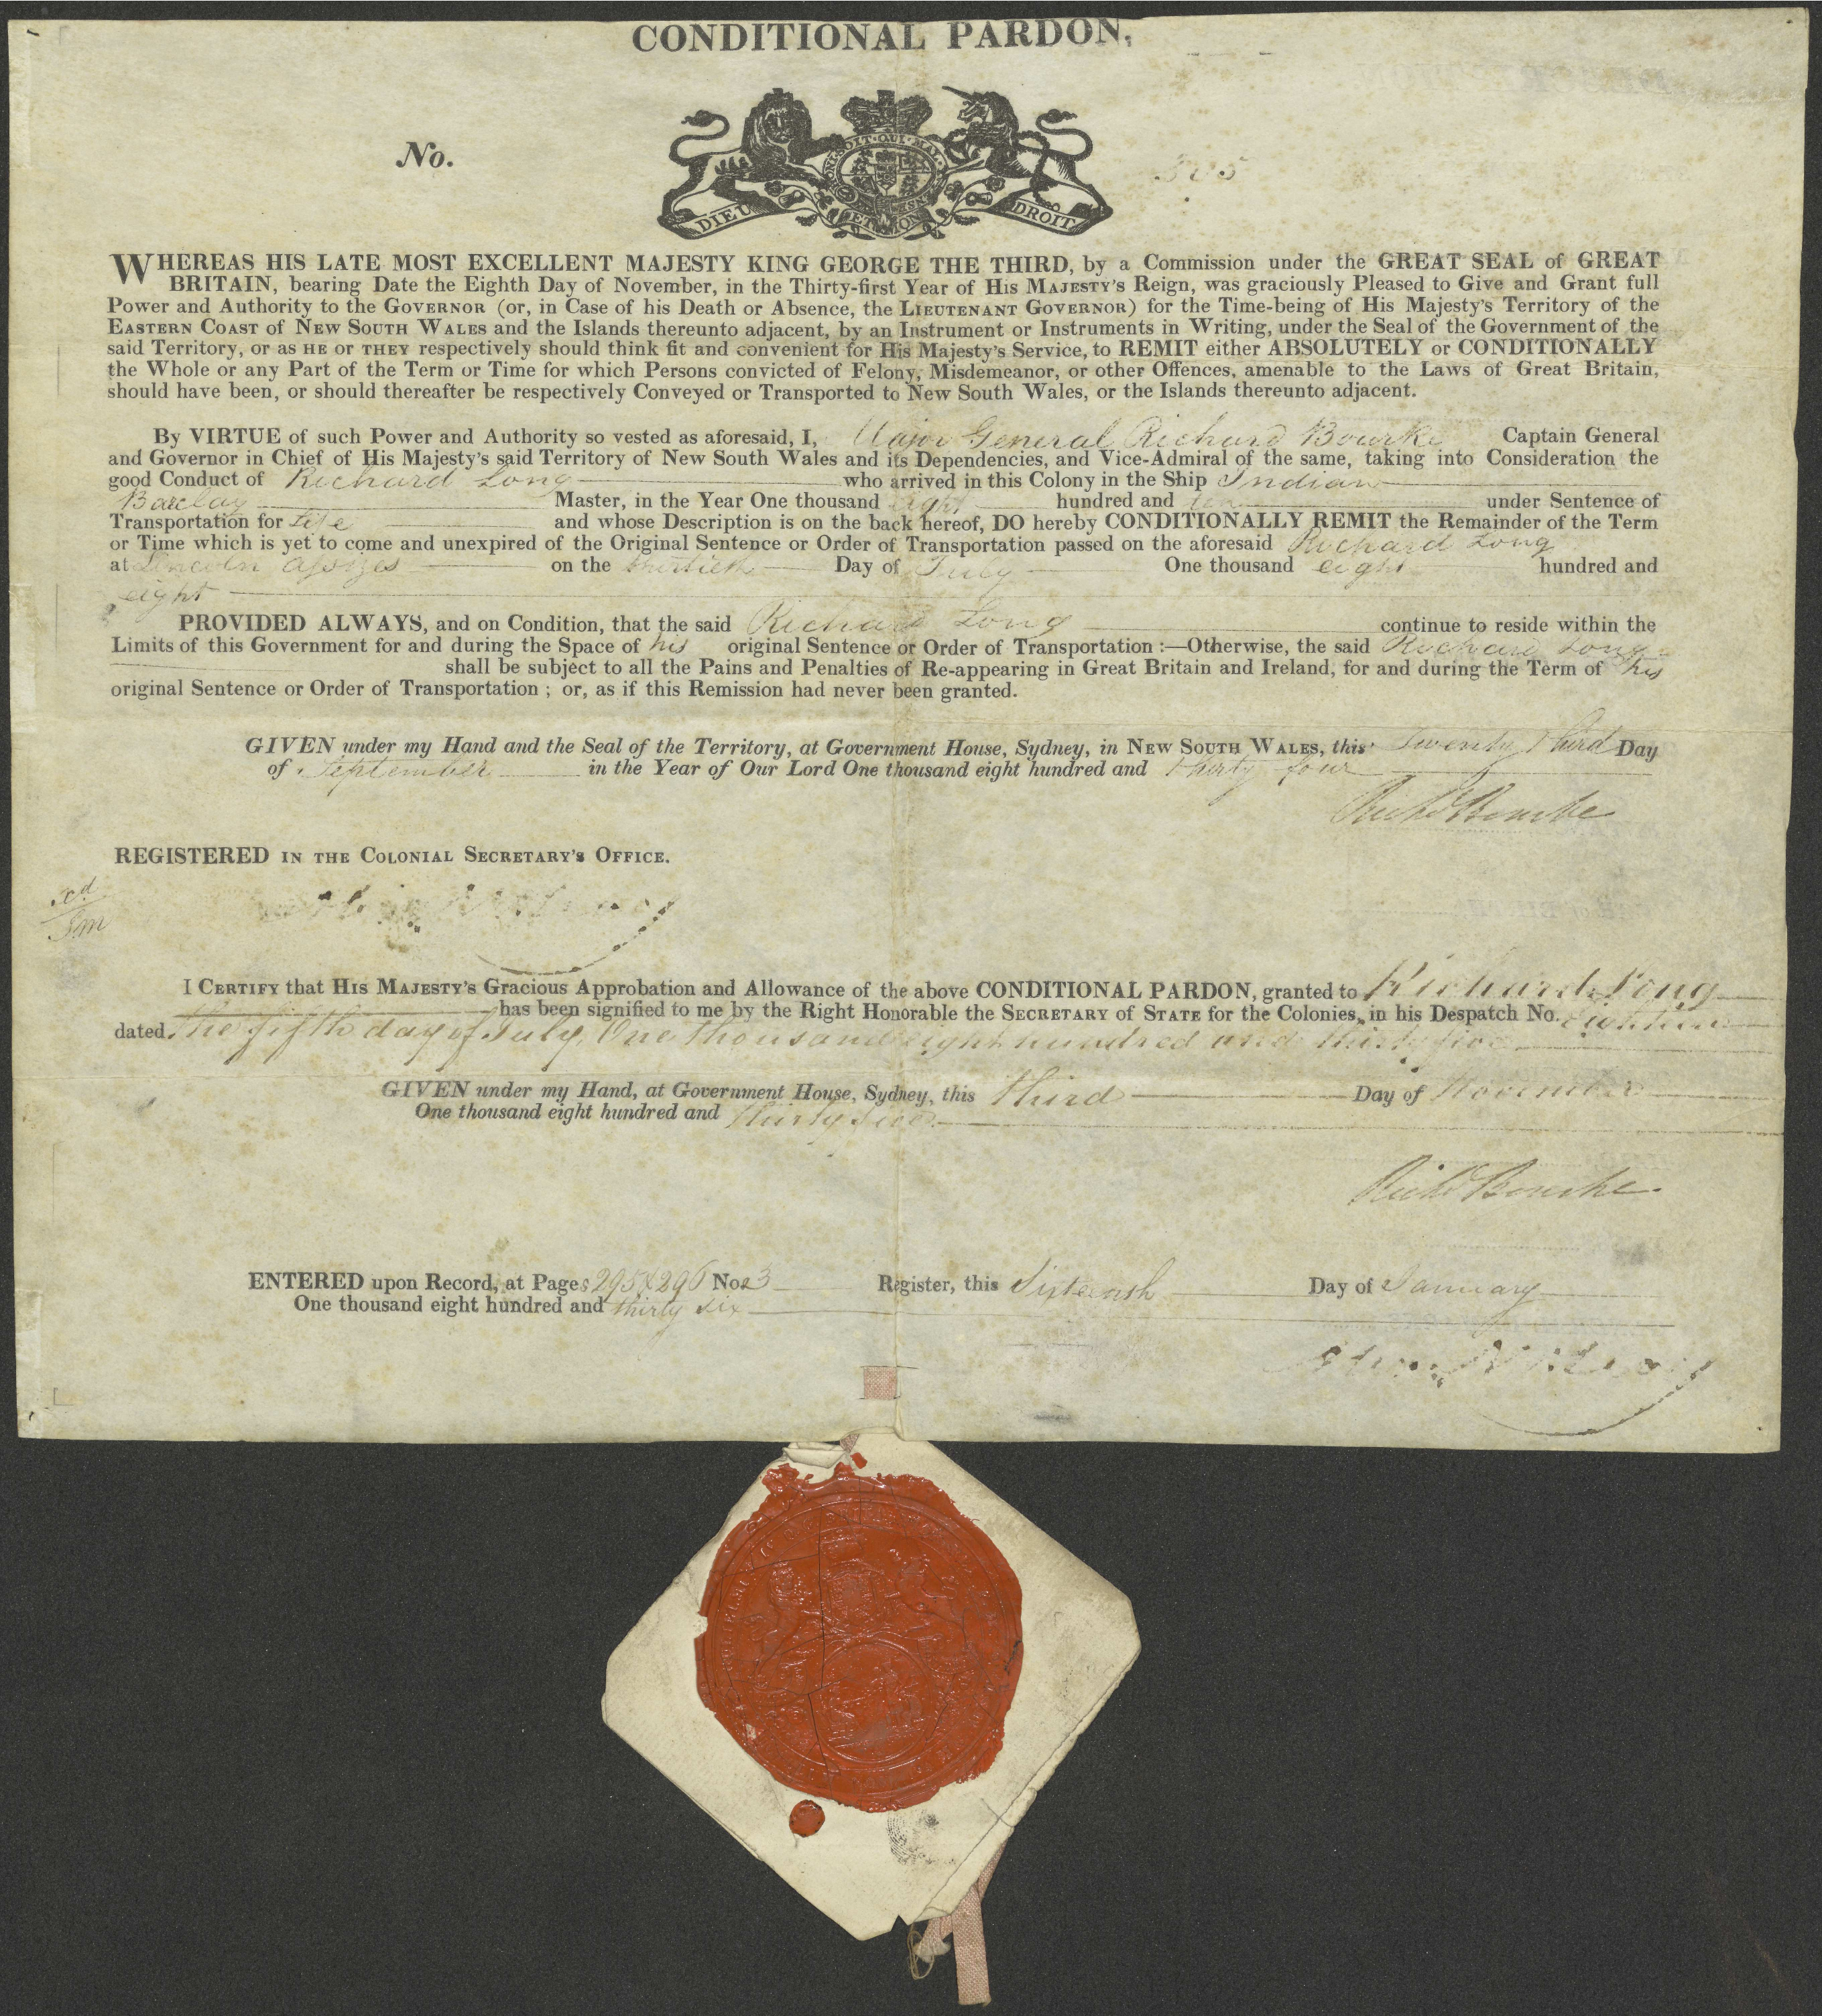 CONDITIONAL PARDON,
No.
HONI SOIT QUI MAL
DIEU ET MON DROIT
WHEREAS HIS LATE MOST EXCELLENT MAJESTY KING GEORGE THE THIRD, by a Commission under the GREAT SEAL of GREAT
BRITAIN, bearing Date the Eighth Day of November, in the Thirty-first Year of His MAJESTY'S Reign, was graciously Pleased to Give and Grant full
Power and Authority to the GOVERNOR (or, in Case of his Death or Absence, the LIEUTENANT GOVERNOR) for the Time-being of His Majesty's Territory of the
EASTERN COAST of NEW SOUTH WALES and the Islands thereunto adjacent, by an Instrument or Instruments in Writing, under the Seal of the Government of the
said Territory, or as HE or THEY respectively should think fit and convenient for His Majesty's Service, to REMIT either ABSOLUTELY or CONDITIONALLY
the Whole or any Part of the Term or Time for which Persons convicted of Felony, Misdemeanor, or other Offences, amenable to the Laws of Great Britain,
should have been, or should thereafter be respectively Conveyed or Transported to New South Wales, or the Islands thereunto adjacent.
By VIRTUE of such Power and Authority so vested as aforesaid, I, Major General Richard Bourke Captain General
and Governor in Chief of His Majesty's said Territory of New South Wales and its Dependencies, and Vice-Admiral of the same, taking into Consideration the
good Conduct of Richard Long who arrived in this Colony in the Ship Indian
Barclay Master, in the Year One thousand eight hundred and ten under Sentence of
Transportation for Life and whose Description is on the back hereof, DO hereby CONDITIONALLY REMIT the Remainder of the Term
or Time which is yet to come and unexpired of the Original Sentence or Order of Transportation passed on the aforesaid Richard Long
at Lincoln Assizes on the thirtieth Day of July One thousand eight hundred and
eight
PROVIDED ALWAYS, and on Condition, that the said Richard Long continue to reside within the
Limits of this Government for and during the Space of his original Sentence or Order of Transportation :—Otherwise, the said Richard Long
shall be subject to all the Pains and Penalties of Re-appearing in Great Britain and Ireland, for and during the Term of his
original Sentence or Order of Transportation ; or, as if this Remission had never been granted.
GIVEN under my Hand and the Seal of the Territory, at Government House, Sydney, in NEW SOUTH WALES, this Twenty third Day
of September in the Year of Our Lord One thousand eight hundred and thirty four
Richd Bourke
REGISTERED IN THE COLONIAL SECRETARY'S OFFICE.
I CERTIFY that HIS MAJESTY'S Gracious Approbation and Allowance of the above CONDITIONAL PARDON, granted to Richard Long
has been signified to me by the Right Honorable the SECRETARY of STATE for the Colonies, in his Despatch No. Eighteen
dated the fifth day of July, One thousand eight hundred and thirty five
GIVEN under my Hand, at Government House, Sydney, this third Day of November
One thousand eight hundred and thirty five
Richd Bourke
ENTERED upon Record, at Pages 295 & 296 No 23 Register, this Sixteenth Day of January
One thousand eight hundred and thirty six